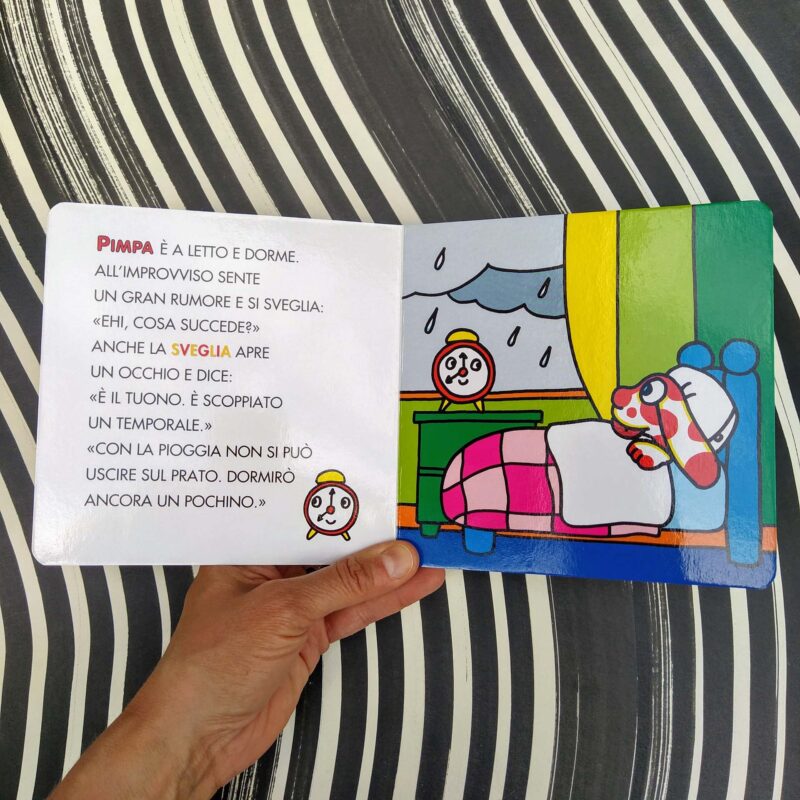 PIMPA È A LETTO E DORME.
ALL'IMPROVVISO SENTE
UN GRAN RUMORE E SI SVEGLIA:
«EHI, COSA SUCCEDE?»
ANCHE LA SVEGLIA APRE
UN OCCHIO E DICE:
«È IL TUONO. È SCOPPIATO
UN TEMPORALE.»
«CON LA PIOGGIA NON SI PUÒ
USCIRE SUL PRATO. DORMIRÒ
ANCORA UN POCHINO.»